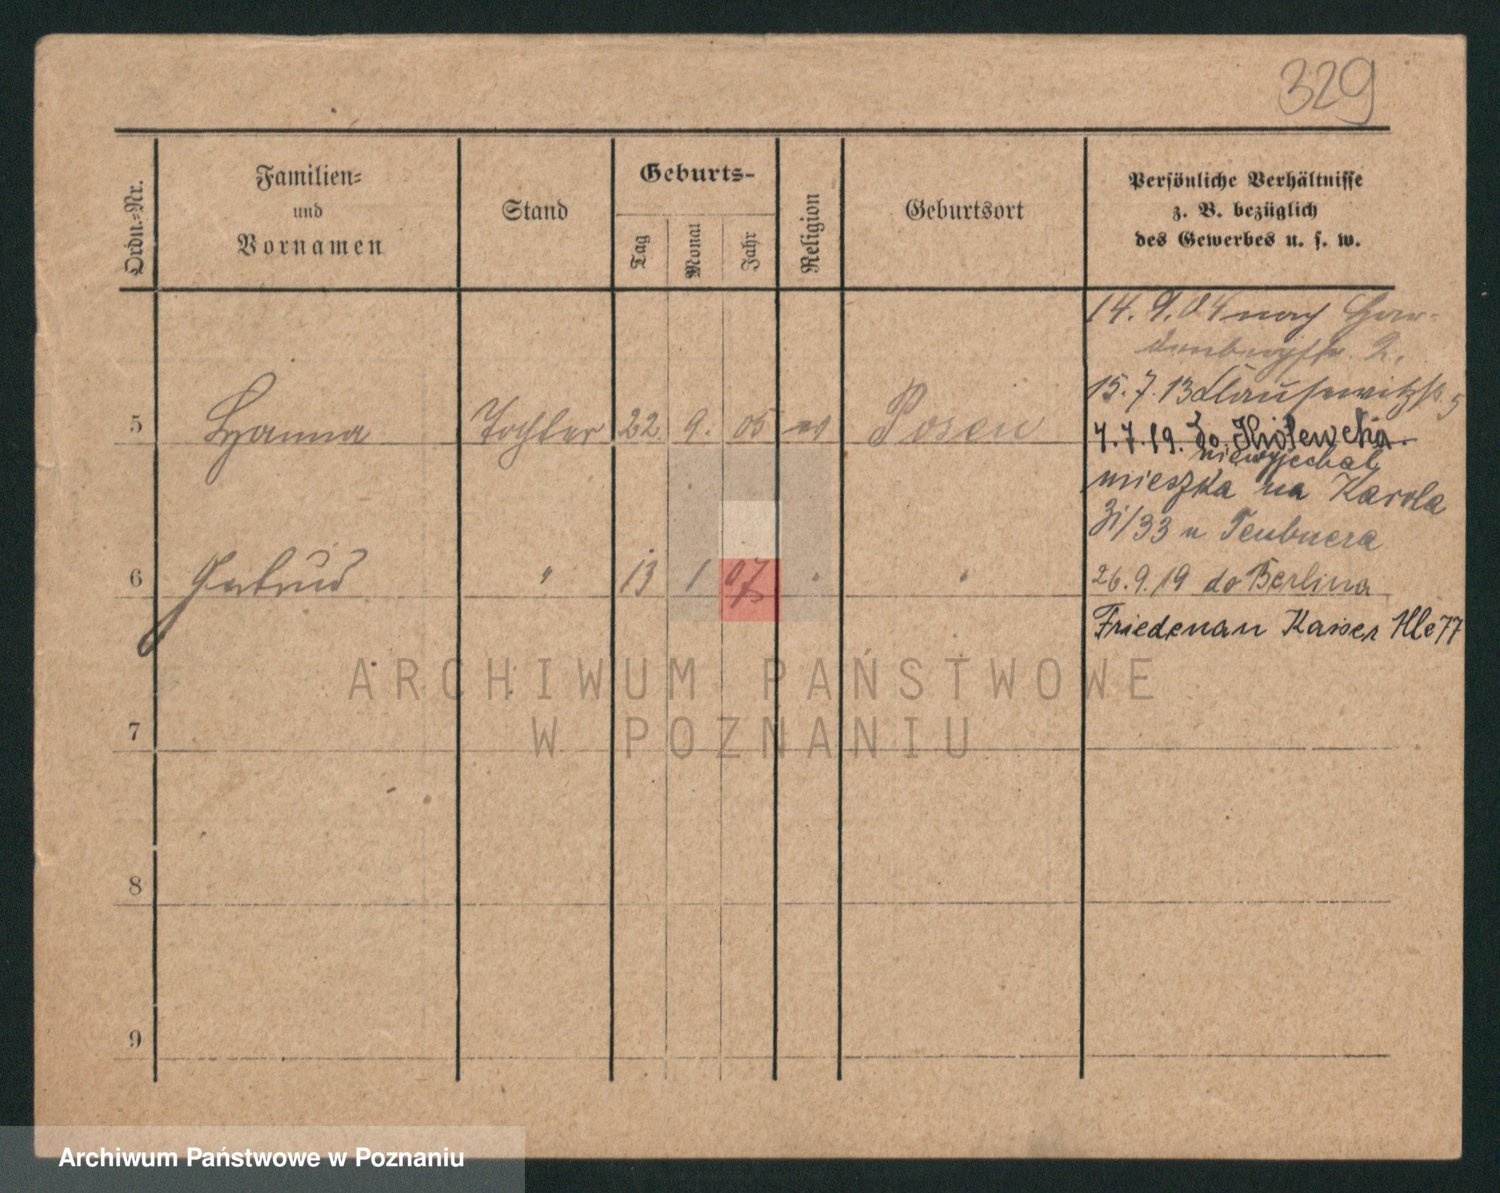 329
Ordn.-Nr.
Familien-
und
Vornamen
Stand
Geburts-
Tag
Monat
Jahr
Religion
Geburtsort
Persönliche Verhältnisse
z. B. bezüglich
des Gewerbes u. s. w.
14. 9. 04 nach Har-
denbergstr. 2.
15. 7. 13 Clausewitzstr. 5
5 Hanna Tochter 22 9. 05 ev Posen
4. 7. 19. do
niewyjechał
mieszka na Karola
31/33 u Teubnera
6 Gertrud " 13 1 07 " "
26. 9. 19 do Berlina
Friedenau Kaiser Alle 77
7
8
9
ARCHIWUM PAŃSTWOWE
W POZNANIU
Archiwum Państwowe w Poznaniu